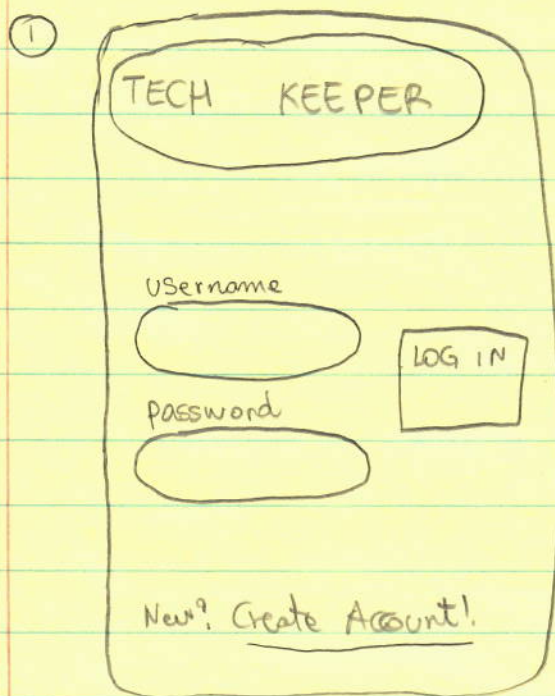 1
TECH KEEPER
Username
LOG IN
password
New? Create Account!